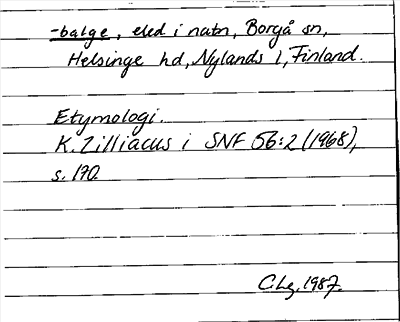 -balge, eled i natn, Borgå sn,
Helsinge hd, Nylands l, Finland.
Etymologi.
K. Zilliacus i SNF 56:2 (1968),
s. 170.
C.Lg, 1987.